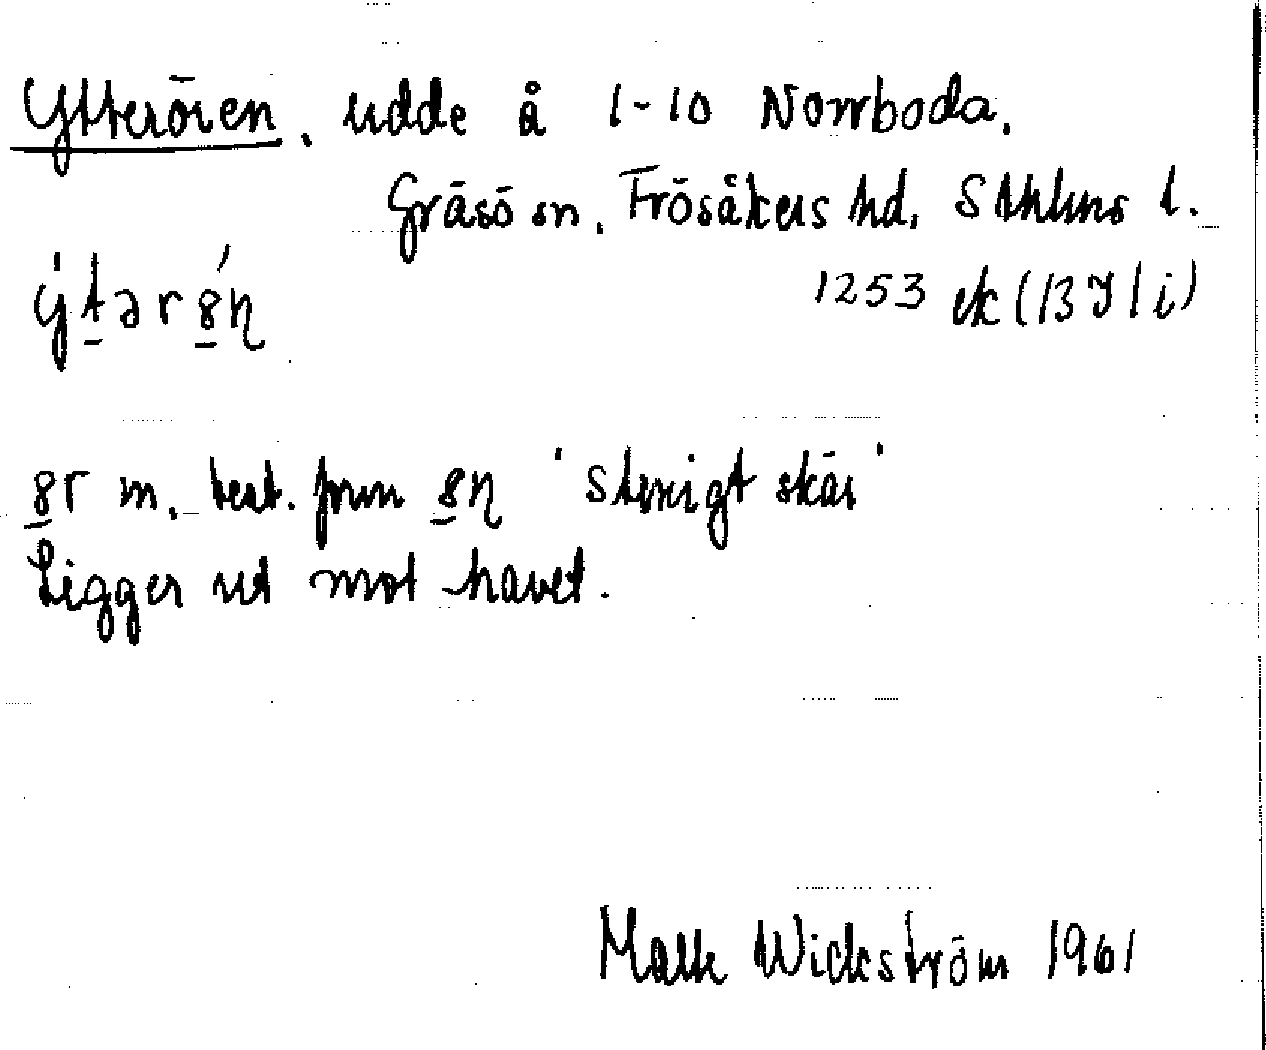 Ytterören, udde å 1-10 Norrboda,
Gräsö sn, Frösåkers hd, Sthlms l.
ýtərȣ́n
1253 ek (13I1i)
ȣr m. best. form ȣn 'stenigt skär'
Ligger ut mot havet.
Wickström 1961